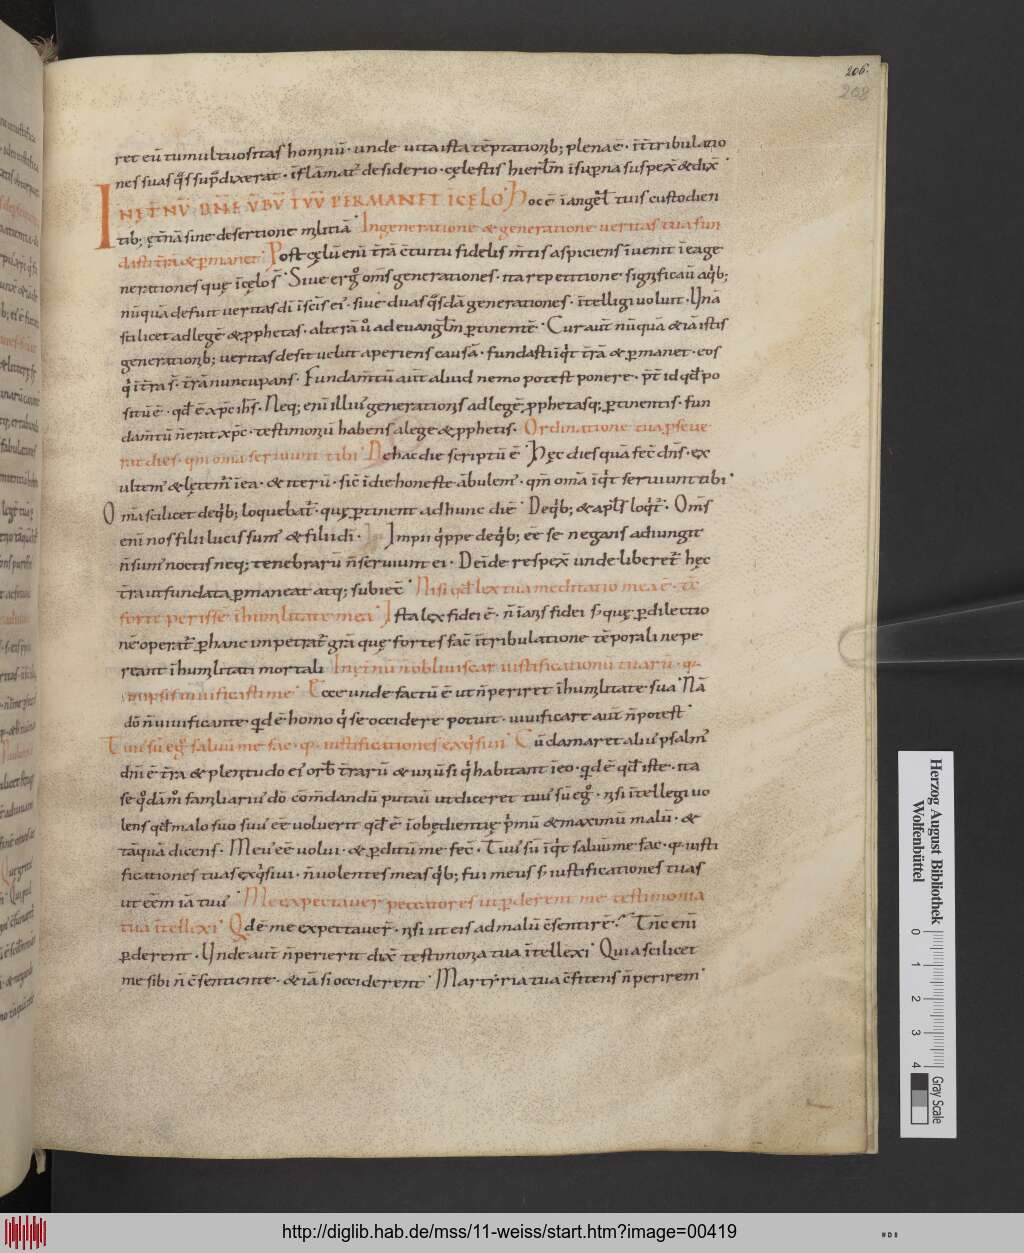 206.
208
ret eū tumultuositas hominū · unde uita ista tēptationib; plena ē · īt̄ribulatio
nes suas q̄s sup̄dixerat · īflāmat' desiderio · cęlestis hierl̄m īsup̄na suspex̄ & dix̄
INĘT̄NŪ DN̄E V̄BV̄ TVV̄ PERMANET ĪCĘLO · Hoc ē īangel̄ tuis custodien
tib; ęt̄nā sine desertione militiā · In generatione & generatione ueritas tua fun
dasti t̄rā & p̄manet · Post cęlū enī t̄rā c̄tuitu fidelis m̄tis aspiciens īuenit īea ge
nerationes quę īcęlo s̄ · Siue ergo om̄s generationes · ita repetitione significau aq̄b;
nūquā defuit ueritas dī īscīs ei' · siue duas q̄sdā generationes · īt̄elligi uoluit · Unā
scilicet ad legē & p̄phetas · alterā ū ad euangl̄m p̄tinentē · Cur aut̄ nūquā & iā istis
generationib; ueritas desit uelut aperiens causā · fundasti īq̄t t̄rā & p̄manet · eos
q̄ īt̄ra s̄ · t̄rā nuncupans · Fundam̄tū aut̄ aliud nemo potest ponere · p̄t̄ id qd̄ po
situ ē · qd̄ ē xp̄c ih̄s · Neq; enī illiu' generationis ad legē p̄phetasq; p̄tinentis · fun
dam̄tū n̄ erat xp̄c · testimoniū habens a lege & p̄phetis · Ordinatione tua p̄seue
rat dies · qm̄ om̄a seruiunt tibi · De hac die scriptū ē · Hęc dies quā fec̄ dn̄s · ex
ultem' & lętem' īea · & iterū · sic̄ īdie honeste ābulem' · qm̄ om̄a īq̄t seruiunt tibi ·
Om̄a scilicet de q̄b; loquebat' · quę p̄tinent ad hunc diē · De q̄b; & apl̄s loq̄t' · Om̄s
enī nos filii lucis sum' & filii dī · Impii q̄ppe de q̄b; eē se negans adiungit
n̄ sum' noctis neq; tenebrarū n̄ seruiunt ei · Deīde respex̄ unde liberet̄ hęc
t̄ra ut fundata p̄maneat atq; subiec̄ · Nisi qd̄ lex tua meditatio mea ē · tc̄
forte perissē īhumilitate mea · Ista lęx fidei ē · n̄ īanis fidei s̄ quę p̄ dilectio
nē operat̄ · p̄ hanc impetrat̄ gr̄a quę fortes fac̄ ītribulatione tēporali ne pe
reant īhumilitati mortali · Inęt̄nū n̄ obliuiscar iustificationū tuarū · q·
in ipsis uiuificasti me · Ecce unde factū ē ut n̄ periret īhumilitate sua · Nā
dō n̄ uiuificante qd ē homo q̄ se occidere potuit · uiuificare aut̄ n̄ potest ·
Tuus sū eg̊ saluū me fac · q· iustificationes exq̄siui · Cū clamaret aliu' psalm'
dn̄i ē t̄ra & plenitudo ei' orb̄ t̄rarū & uniūsi q̄ habitant īeo · qd ē qd̄ iste · ita
se q̄dām familiariu' dō com̄dandū putaū ut diceret tuu' sū eg̊ · nisi īt̄ellegi uo
lens qd̄ malo suo suu' eē uoluerit qd̄ ē īobędientię p̄mū & maximū malū · &
tāquā dicens · Meu' eē uolui · & p̄ditū me fec̄ · Tuu' sū īq̄t saluū me fac · q· iusti
ficationes tuas ęxq̄siui · n̄ uolentes meas q̄b; fui meus s̄ iustificationes tuas
ut ēc̄m iā tuu' · Me expectauer̄ peccatores ut p̄derent me testimonia
tua īt̄ellexi · Qd ē me expectauer̄ · nisi ut eis ad malū c̄sentirē · Tn̄c enī
p̄derent · Unde aut̄ n̄ perierit dix̄ testimonia tua īt̄ellexi · Quia scilicet
me sibi n̄ c̄sentiente · & iā si occiderent · Martyria tua c̄fitens n̄ perirem ·
Herzog August Bibliothek
Wolfenbüttel
0 1 2 3 4
Gray Scale
http://diglib.hab.de/mss/11-weiss/start.htm?image=00419